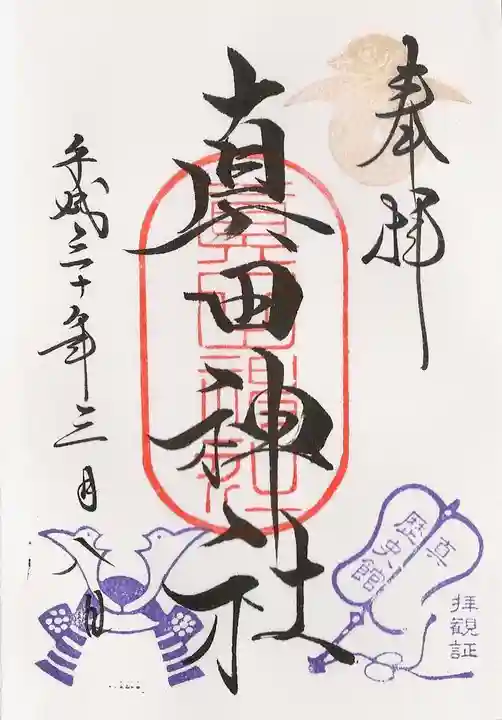 奉拝
真田神社
平成三十年三月八日
真田神社
歴史館
拝観証